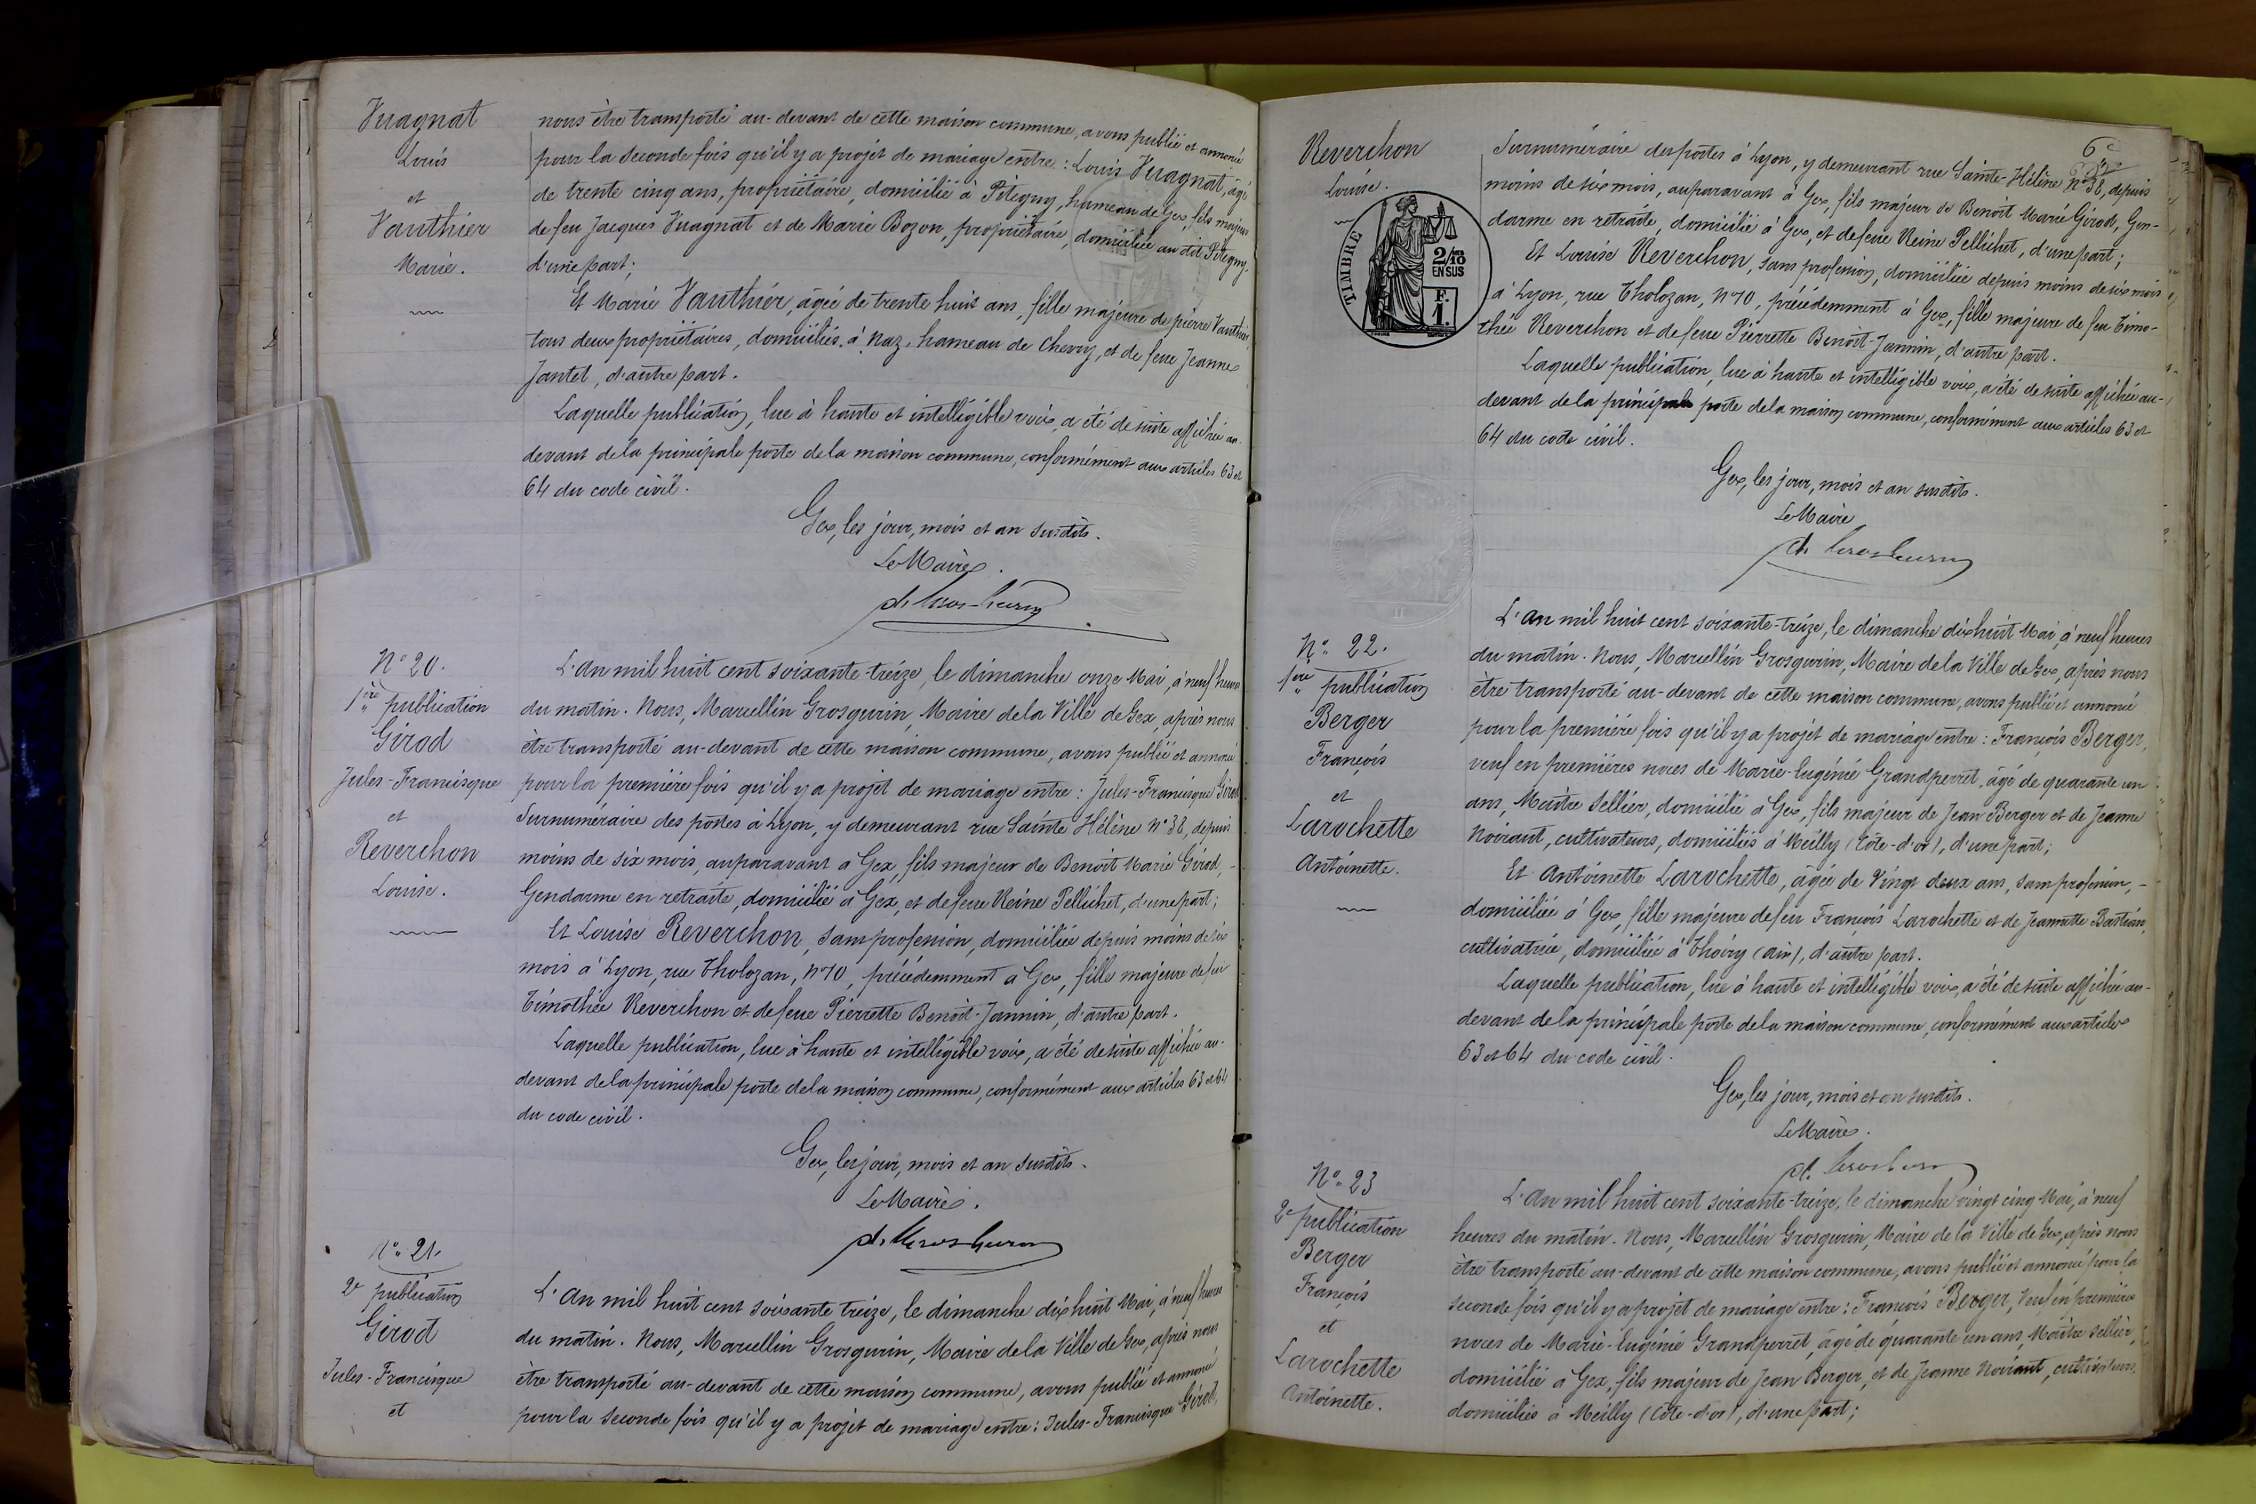 Vuagnat
Louis
et
Vauthier
Marie.
nous être transporté au-devant de cette maison commune, avons publié et annoncé
pour la seconde fois qu'il y a projet de mariage entre : Louis Vuagnat, âgé
de trente cinq ans, propriétaire, domicilié à Pitegny, hameau de Gex, fils majeur
de feu Jacques Vuagnat et de Marie Bozon, propriétaire, domiciliée au dit Pitegny,
d'une part;
Et Marie Vauthier, âgée de trente huit ans, fille majeure de pierre Vauthier
tous deux propriétaires, domiciliés à Naz, hameau de Chevry, et de feue Jeanne
Jantet, d'autre part.
Laquelle publication, lue à haute et intelligible voix, a été de suite affichée au-
devant de la principale porte de la maison commune, conformément aux articles 63 et
64 du code civil.
Gex, les jour, mois et an susdits.
Le Maire.
N° 20.
1ère publication
Girod
Jules-Francisque
et
Reverchon
Louise.
L'An mil huit cent soixante-treize, le dimanche onze Mai, à neuf heures
du matin. Nous, Marcellin Grosgurin, Maire de la Ville de Gex, après nous
être transporté au-devant de cette maison commune, avons publié et annoncé
pour la première fois qu'il y a projet de mariage entre : Jules-Francisque Girod
Surnuméraire des postes à Lyon, y demeurant rue Sainte Hélène N° 38, depuis
moins de six mois, auparavant à Gex, fils majeur de Benoît Marie Girod, -
Gendarme en retraite, domicilié à Gex, et de feue Reine Pellichet, d'une part;
Et Louise Reverchon, sans profession, domiciliée depuis moins de six
mois à Lyon, rue Tholozan, N° 10, précédemment à Gex, fille majeure de feu
Timothée Reverchon et de feue Pierrette Benoît-Jannin, d'autre part.
Laquelle publication, lue à haute et intelligible voix, a été de suite affichée au-
devant de la principale porte de la maison commune, conformément aux articles 63 et 64
du code civil.
Gex, les jour, mois et an susdits.
Le Maire.
N° 21.
2e publication
Girod
Jules-Francisque
et
L'An mil huit cent soixante treize, le dimanche dix huit Mai, à neuf heures
du matin. Nous, Marcellin Grosgurin, Maire de la Ville de Gex, après nous
être transporté au-devant de cette maison commune, avons publié et annoncé
pour la seconde fois qu'il y a projet de mariage entre : Jules-Francisque Girod,
6e
Reverchon
Louise.
TIMBRE
2/10
EN SUS
F.
1.
Surnuméraire des postes à Lyon, y demeurant rue Sainte-Hélène N° 38, depuis
moins de six mois, auparavant à Gex, fils majeur de Benoît Marie Girod, Gen-
darme en retraite, domicilié à Gex, et de feue Reine Pellichet, d'une part;
Et Louise Reverchon, sans profession, domiciliée depuis moins de six mois
à Lyon, rue Tholozan, N° 10, précédemment à Gex, fille majeure de feu Timo-
thée Reverchon et de feue Pierrette Benoît-Jannin, d'autre part.
Laquelle publication, lue à haute et intelligible voix, a été de suite affichée au-
devant de la principale porte de la maison commune, conformément aux articles 63 et
64 du code civil.
Gex, les jour, mois et an susdits.
Le Maire
N° 22.
1ere publication
Berger
François
et
Larochette
Antoinette.
L'An mil huit cent soixante-treize, le dimanche dix huit Mai, à neuf heures
du matin. Nous, Marcellin Grosgurin, Maire de la Ville de Gex, après nous
être transporté au-devant de cette maison commune, avons publié et annoncé
pour la première fois qu'il y a projet de mariage entre : François Berger,
veuf en premières noces de Marie-Eugénie Grandperret, âgé de quarante un
ans, Maître Sellier, domicilié à Gex, fils majeur de Jean Berger et de Jeanne
Noirant, cultivateurs, domiciliés à Meilly (Côte-d'or), d'une part;
Et Antoinette Larochette, âgée de Vingt deux ans, sans profession, -
domiciliée à Gex, fille majeure de feu François Larochette et de Jeannette Bastian,
cultivatrice, domiciliée à Thoiry (Ain), d'autre part.
Laquelle publication, lue à haute et intelligible voix, a été de suite affichée au-
devant de la principale porte de la maison commune, conformément aux articles
63 et 64 du code civil.
Gex, les jour, mois et an susdits.
Le Maire.
N° 23
2e publication
Berger
François
et
Larochette
Antoinette.
L'An mil huit cent soixante-treize, le dimanche vingt cinq Mai, à neuf
heures du matin. Nous, Marcellin Grosgurin, Maire de la Ville de Gex, après nous
être transporté au-devant de cette maison commune, avons publié et annoncé pour la
seconde fois qu'il y a projet de mariage entre : François Berger, Veuf en premières
noces de Marie-Eugénie Grandperret, âgé de quarante un ans, Maître sellier,
domicilié à Gex, fils majeur de Jean Berger, et de Jeanne Noirant, cultivateurs,
domiciliés à Meilly (Côte-d'or), d'une part;